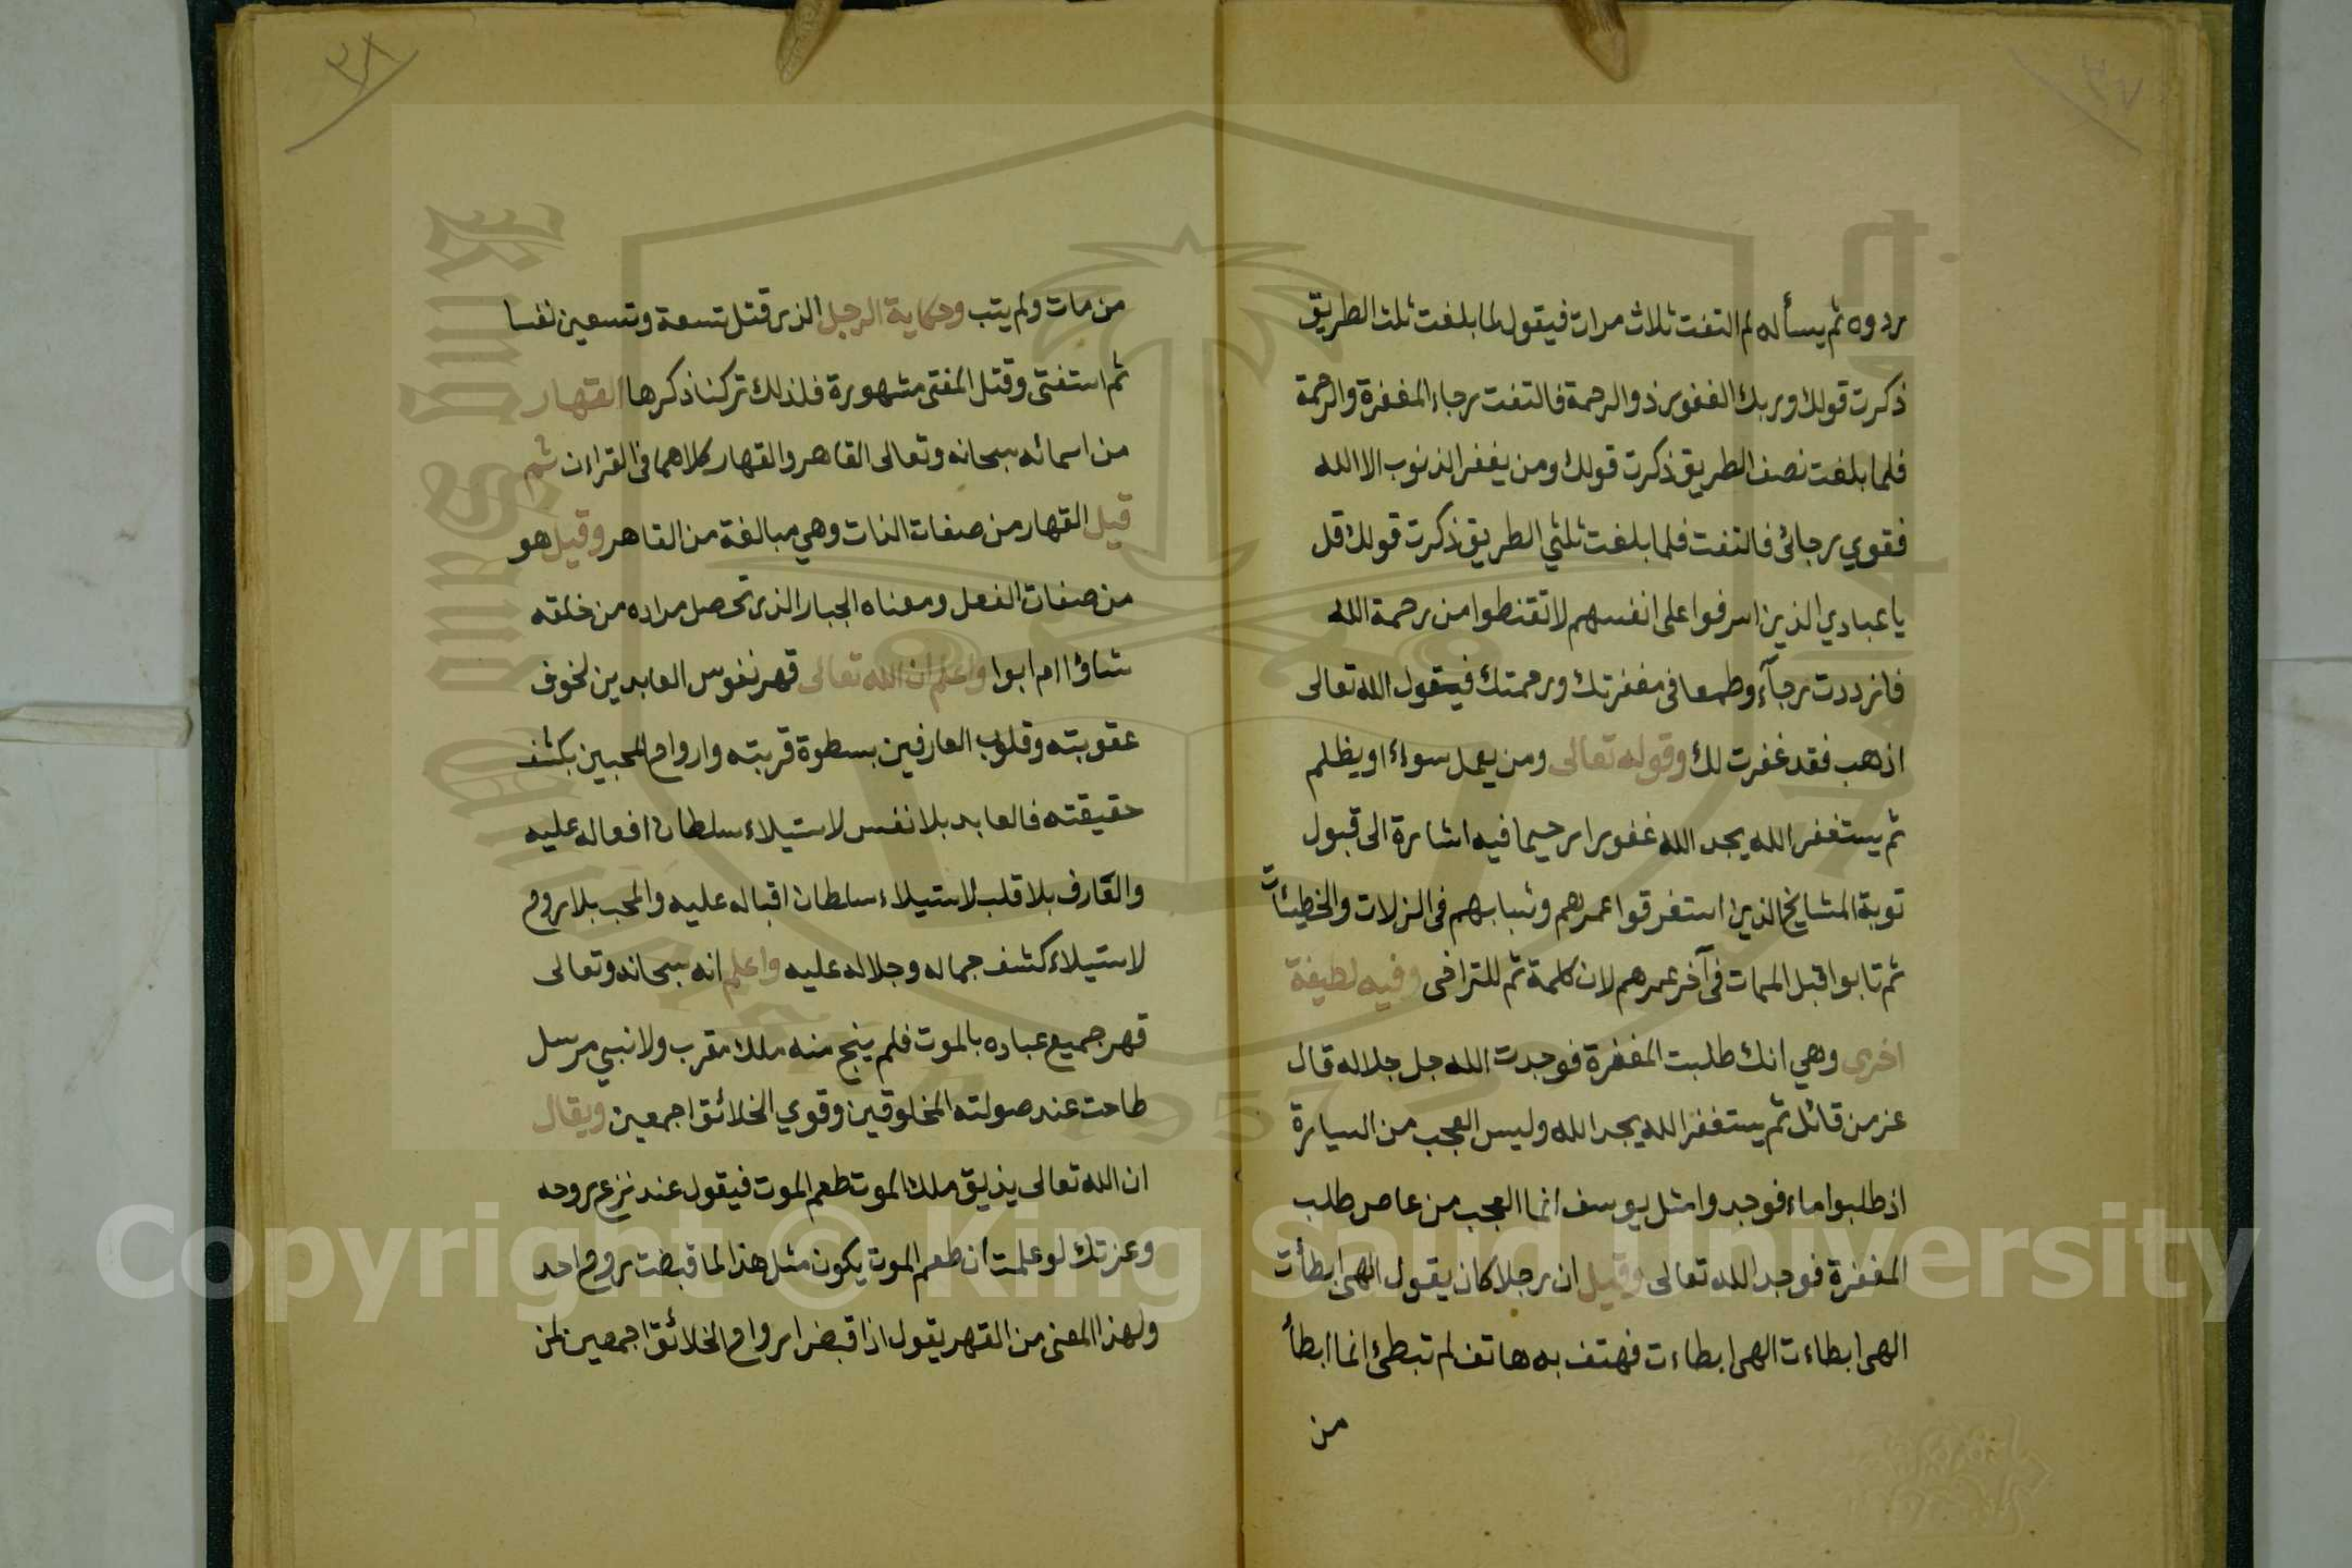 ٣٧
ردوه ثم يسأله لم التفت ثلاث مرات فيقول لما بلغت ثلث الطريق
ذكرت قولك وربك الغفور ذو الرحمة فالتفت رجاء المغفرة والرحمة
فلما بلغت نصف الطريق ذكرت قولك ومن يغفر الذنوب الا الله
فقوي رجائى فالتفت فلما بلغت ثلثي الطريق ذكرت قولك قل
يا عبادي الذين اسرفوا على انفسهم لا تقنطوا من رحمة الله
فازددت رجآء وطمعا فى مغفرتك ورحمتك فيقول الله تعالى
اذهب فقد غفرت لك وقوله تعالى ومن يعمل سوءا او يظلم
ثم يستغفر الله يجد الله غفورا رحيما فيه اشارة الى قبول
توبة المشايخ الذين استغرقوا عمرهم وشبابهم فى الزلات والخطيئات
ثم تابوا قبل الممات فى آخر عمرهم لان كلمة ثم للتراخى وفيه لطيفة
اخرى وهي انك طلبت المغفرة فوجدت الله جل جلاله قال
عز من قائل ثم يستغفر الله يجد الله وليس العجب من السيارة
اذ طلبوا ماء فوجدوا مثل يوسف انما العجب من عاص طلب
المغفرة فوجد الله تعالى وقيل ان رجلا كان يقول الهى ابطأت
الهى ابطاءت الهى ابطاءت فهتف به هاتف لم تبطئ انما ابطأ
من
٣٨
من مات ولم يتب وحكاية الرجل الذى قتل تسعة وتسعين نفسا
ثم استفتى وقتل المفتى مشهورة فلذلك تركنا ذكرها القهار
من اسمائه سبحانه وتعالى القاهر والقهار كلاهما فى القراءن ثم
قيل القهار من صفات الذات وهي مبالغة من القاهر وقيل هو
من صفات الفعل ومعناه الجبار الذى تحصل مراده من خلقه
شاؤا ام ابوا واعلم ان الله تعالى قهر نفوس العابدين لخوف
عقوبته وقلوب العارفين بسطوة قربته وارواح المحبين بكشف
حقيقته فالعابد بلا نفس لاستيلاء سلطان افعاله عليه
والعارف بلا قلب لاستيلاء سلطان اقباله عليه والمحب بلا روح
لاستيلاء كشف جماله وجلاله عليه واعلم انه سبحانه وتعالى
قهر جميع عباده بالموت فلم ينج منه ملك مقرب ولا نبي مرسل
طاحت عند صولته المخلوقين وقوي الخلائق اجمعين ويقال
ان الله تعالى يذيق ملك الموت طعم الموت فيقول عند نزع روحه
وعزتك لو علمت أن طعم الموت يكون مثل هذا لما قبضت روح احد
ولهذا المعنى من القهر يقول اذا قبض ارواح الخلائق اجمعين لمن
Copyright © King Saud University